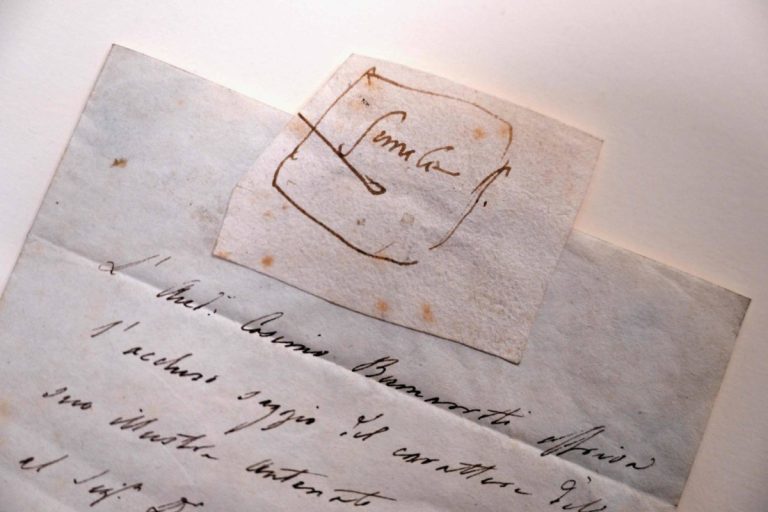 Simile
L' Cosimo Buonarroti offriva
l'accluso saggio del carattere dell
suo illustre antenato
al Sigr. D